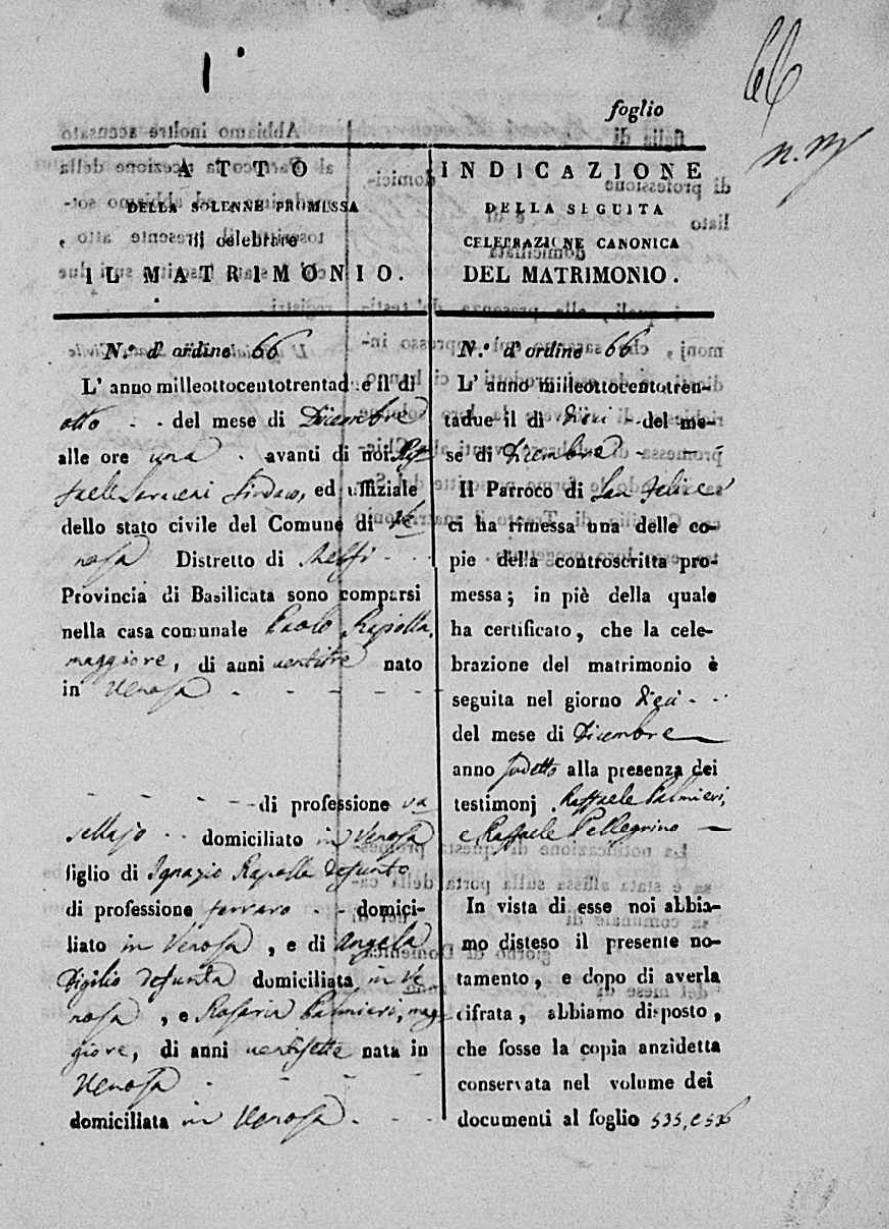 1°
66
foglio
ATTO
DELLA SOLENNE PROMESSA
di celebrare
IL MATRIMONIO.
N.° d' ordine 66
L' anno milleottocentotrentadue il di
otto - - del mese di Dicembre
alle ore una - avanti di noi Raf
faele Saraceni Sindaco, ed uffiziale
dello stato civile del Comune di Ve
nosa Distretto di Melfi - -
Provincia di Basilicata sono comparsi
nella casa comunale Paolo Rapolla,
maggiore, di anni ventitre nato
in Venosa - - - - - -
- - - di professione va
sellajo - - domiciliato in Venosa
figlio di Ignazio Rapolla defunto
di professione ferraro - - domici-
liato in Venosa, e di Angela
Vigilio defunta domiciliata in Ve
nosa, e Rosaria Palmieri, mag-
giore, di anni ventisette nata in
Venosa - - - -
domiciliata in Venosa - - -
INDICAZIONE
DELLA SEGUITA
CELEBRAZIONE CANONICA
DEL MATRIMONIO.
N.° d' ordine 66
L' anno milleottocentotren-
tadue il di dieci - del me-
se di Dicembre - - -
Il Parroco di San Felice
ci ha rimessa una delle co-
pie della controscritta pro-
messa; in piè della quale
ha certificato, che la cele-
brazione del matrimonio è
seguita nel giorno dieci - -
del mese di Dicembre
anno sudetto alla presenza dei
testimonj Raffaele Palmieri,
e Raffaele Pellegrino —
In vista di esse noi abbia-
mo disteso il presente no-
tamento, e dopo di averla
cifrata, abbiamo disposto,
che fosse la copia anzidetta
conservata nel volume dei
documenti al foglio 535, e 536